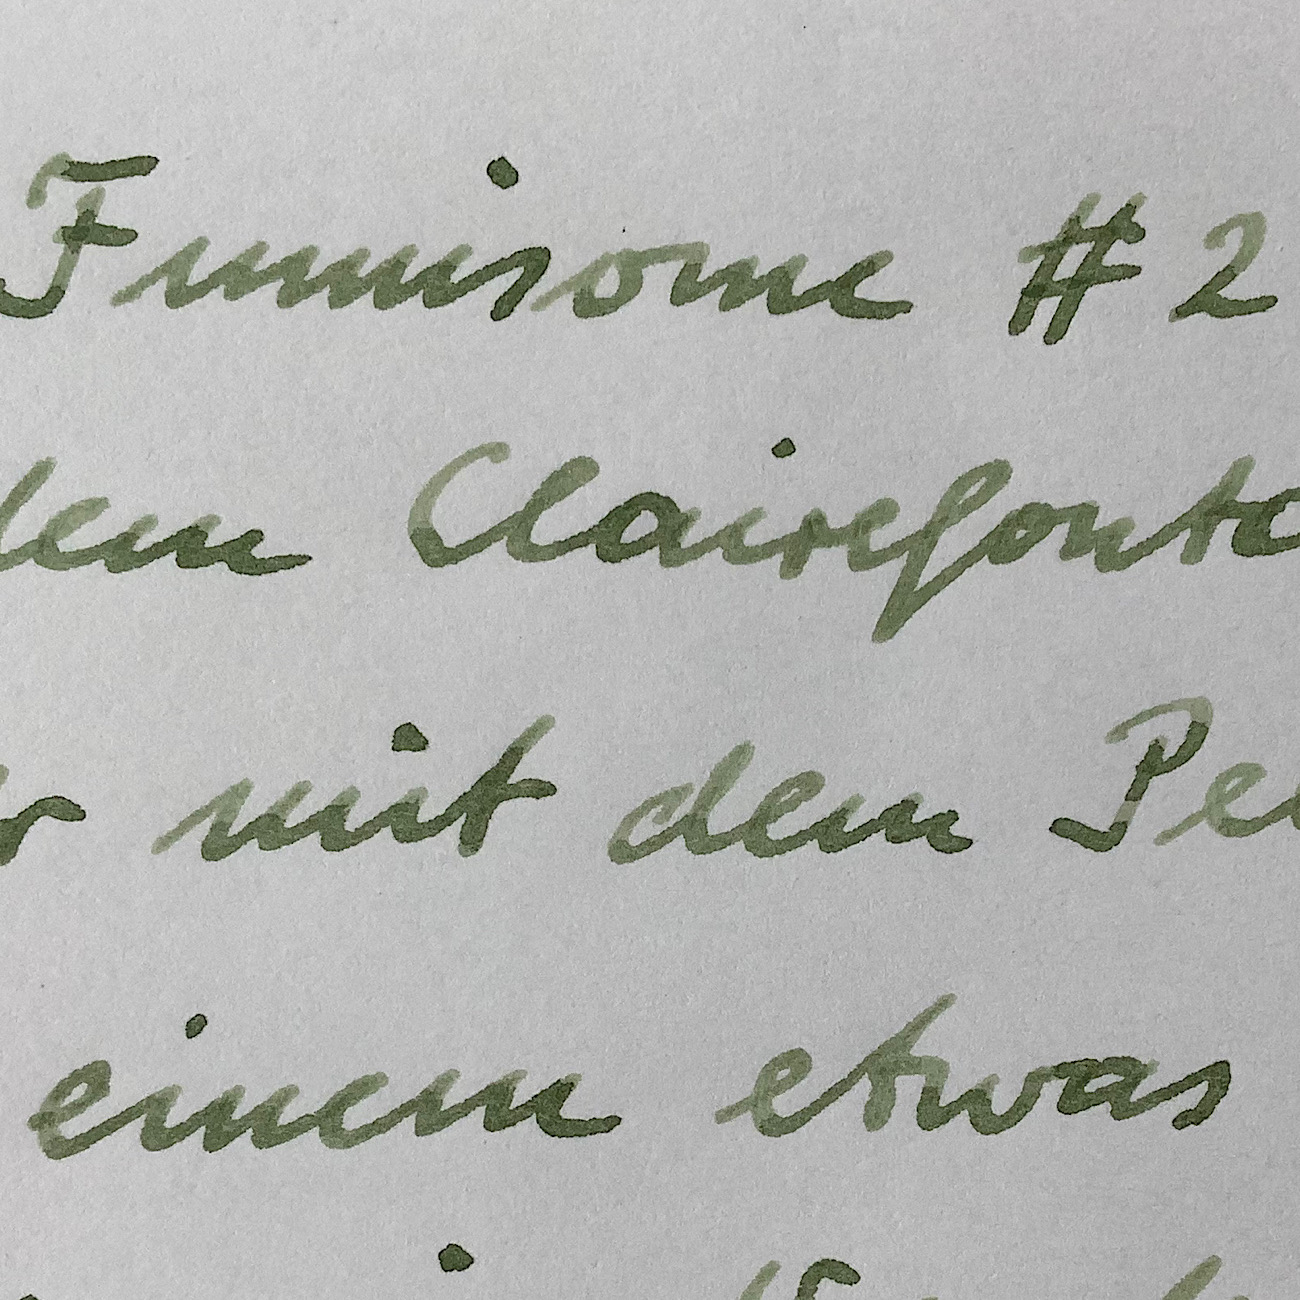 Fumisome #2
dem Clairefonta
r mit dem Pe
einem etwas